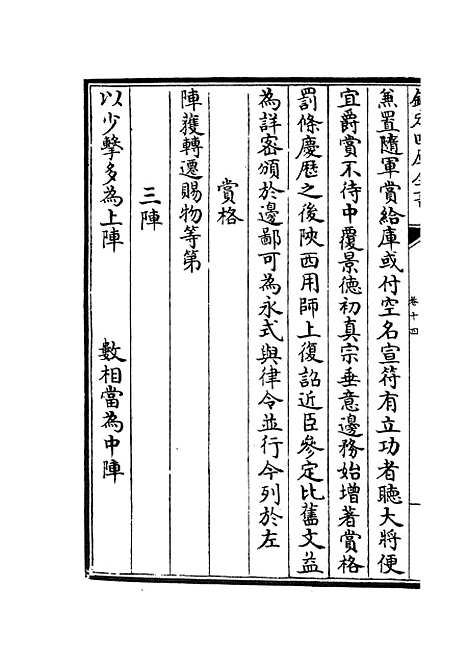 欽定四庫全書
卷十四
兼置隨軍賞給庫或付空名宣符有立功者聽大將便
宜爵賞不待中覆景德初真宗垂意邊務始增著賞格
罰條慶厯之後陜西用師上復詔近臣參定比舊文益
為詳密頒於邊鄙可為永式與律令並行今列於左
賞格
陣獲轉遷賜物等第
三陣
以少擊多為上陣　　數相當為中陣